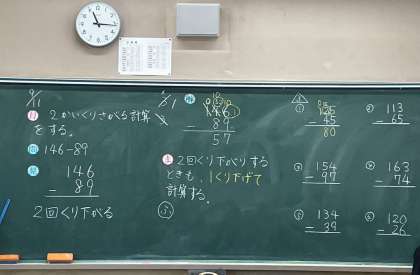 9/11
め 2かいくりさがる計算
をする。
問 146-89
146
- 89
2回くり下がる
146
- 89
57
2回くり下がりする
ときも、1くり下げて
計算する。
125
- 45
80
113
- 65
154
- 97
163
- 74
134
- 39
120
- 26